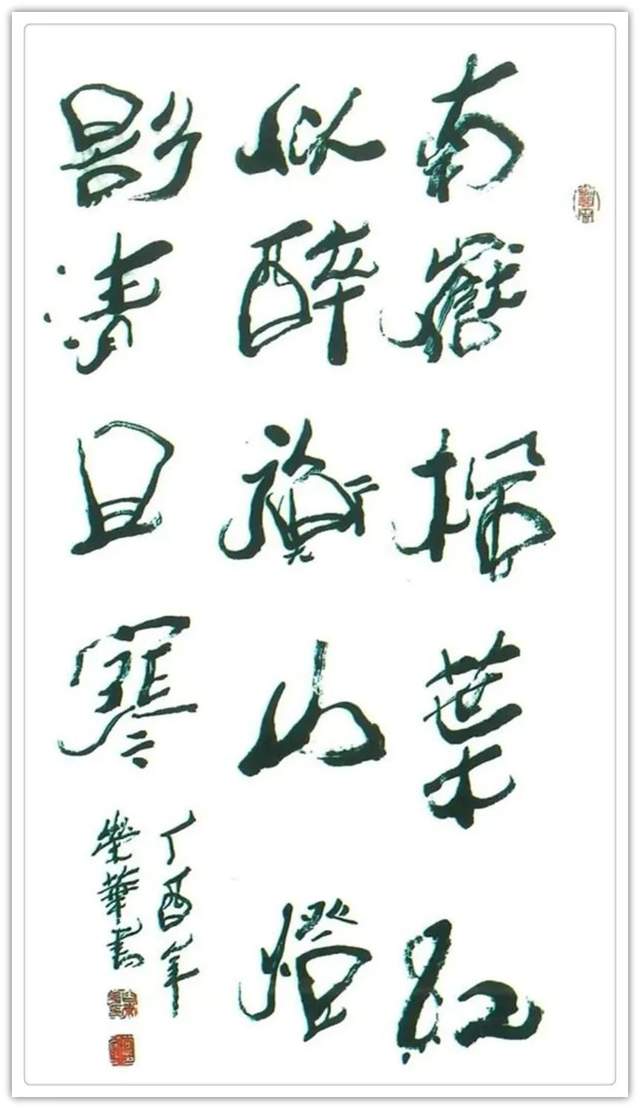 南嶽楓葉紅
似醉山燈
影清且寒
丁酉年
榮華書